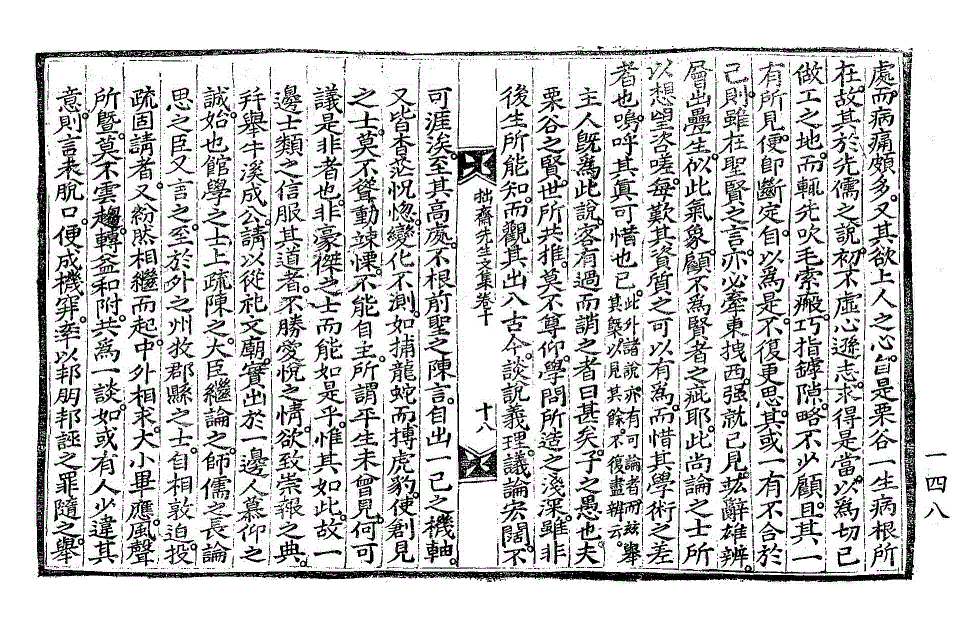 處而病痛頗多。又其欲上人之心。皆是栗谷一生病根所
在。故其於先儒之說。初不虛心遜志。求得是當。以爲切己
做工之地。而輒先吹毛索瘢。巧指罅隙。略不少顧。且其一
有所見。便卽斷定。自以爲是。不復更思。其或一有不合於
己。則雖在聖賢之言。亦必牽東拽西。強就己見。竑辭雄辨。
層出疊生。似此氣象。顧不爲賢者之疵耶。此尙論之士所
以想望咨嗟。每歎其資質之可以有爲。而惜其學術之差
者也。嗚呼其眞可惜也已。此外諸說。亦有可論者。而玆擧其槩。以見其餘。不復盡辨云。
主人旣爲此說。客有過而誚之者曰甚矣。子之愚也。夫
栗谷之賢。世所共推。莫不尊仰。學問所造之淺深。雖非
後生所能知。而觀其出入古今。談說義理。議論宏闊。不
拙齋先生文集卷十
十八
可涯涘。至其高處。不根前聖之陳言。自出一己之機軸。
又皆杳茫怳惚。變化不測。如捕龍蛇而搏虎豹。使創見
之士。莫不聳動竦慄。不能自主。所謂平生未曾見。何可
議是非者也。非豪傑之士而能如是乎。惟其如此。故一
邊士類之信服其道者。不勝愛悅之情。欲致崇報之典。
幷擧牛溪成公。請以從祀文廟。實出於一邊人慕仰之
誠。始也館學之士上疏陳之。大臣繼論之。師儒之長論
思之臣又言之。至於外之州牧郡縣之士。自相敦迫。投
疏固請者。又紛然相繼而起。中外相求。大小畢應。風聲
所曁。莫不雲趨。轉益和附。共爲一談。如或有人少違其
意。則言未脫口。便成機穽。率以邦朋邦誣之罪隨之。擧
一四八